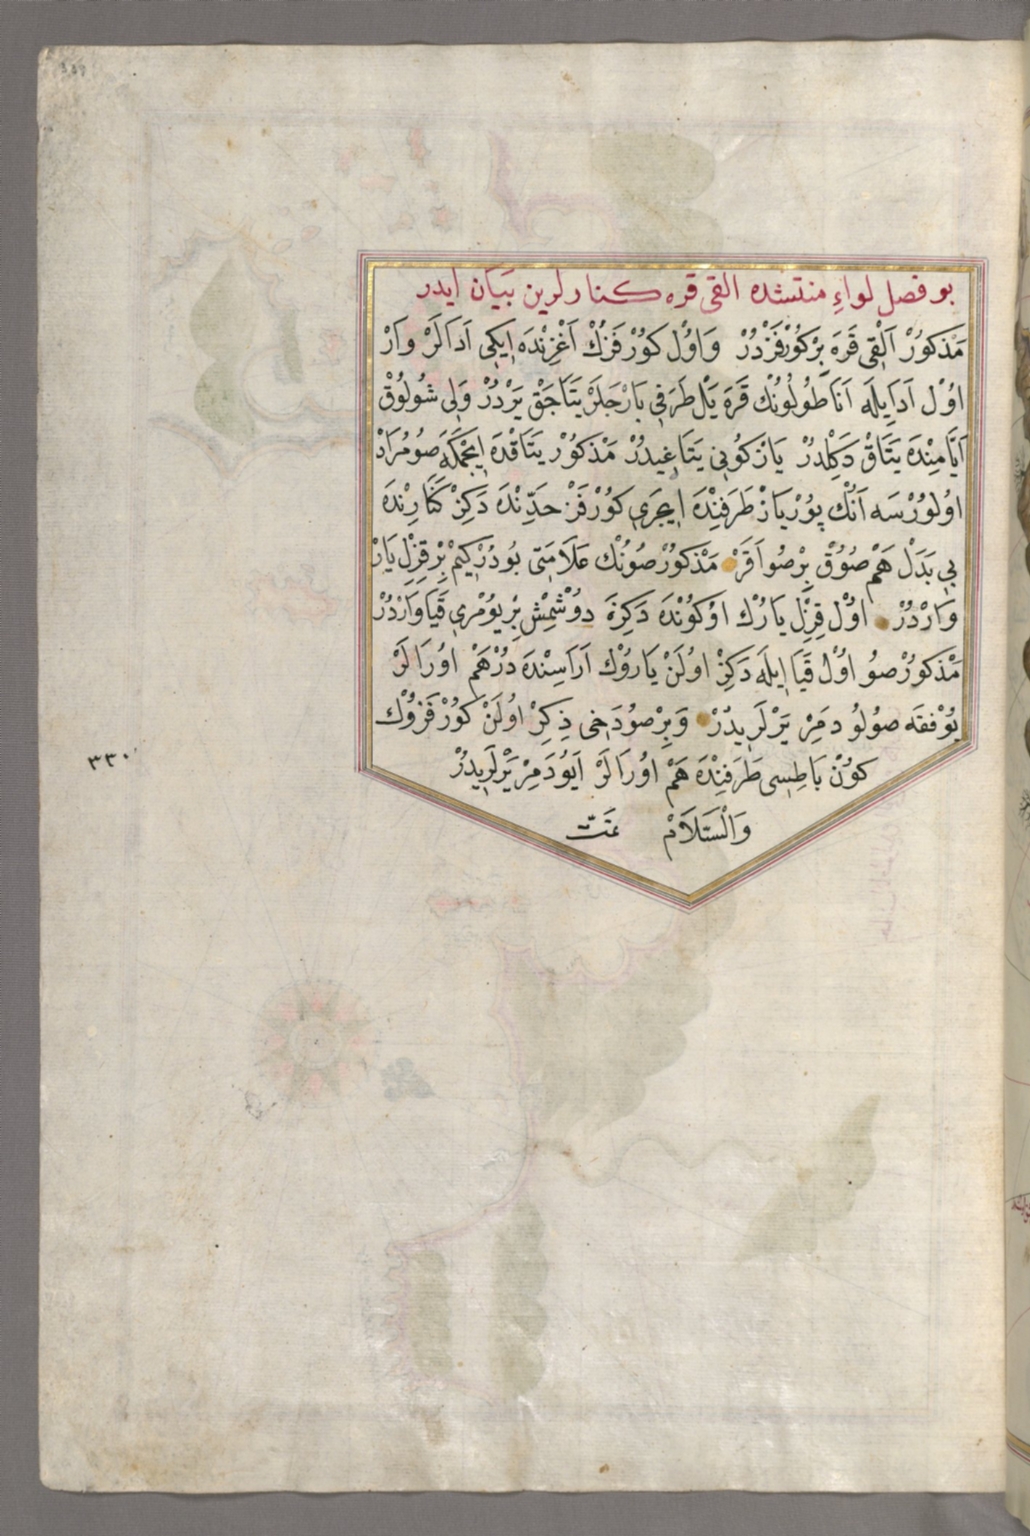 بو فصل لواءِ منتشده القی قره کنارلرین بیان ایدر
مَذکُورْ اَلْقِی قَرَه بِرْ کُورْفَزْدُرْ وَاوُل کُورْفَزُكْ اَغْزِنْدَه اِیکِی اَدَالَرْ وَارْ
اوُل اَدَایِلَه اَنَاطُولُونُكْ قَرَه یَل طَرَفِی بَارْجَلَرْ یَتَاجَقْ یَرْدُرْ وَلِی شُولُوقْ
اَیَّامِنْدَه یَتَاقْ دَکِلْدُرْ یَازْ کُونِی یَتَاغِیدُرْ مَذکُورْ یَتَاقْدَه اِیچْمَکَه صُو مُرَادْ
اوُلُورْسَه اَنُكْ پُورْیَازْ طَرَفِنْدَه اِیچَرِی کُورْفَزْ حَدِّنْدَه دَکِزْ کَنَارِنْدَه
بِی بَدَلْ هَمْ صُوُقْ بِرْ صُو اَقَرْ مَذکُورْ صُونُكْ عَلَامَتِی بُودُرْکِیمْ بِرْ قِزِلْ یَارْ
وَارْدُرْ اوُل قِزِلْ یَارُكْ اوُکُونْدَه دَکِزَه دوُشْمِشْ بِرْ یُومْرِی قَیَا وَارْدُرْ
مَذکُورْ صُو اوُل قَیَا اِیلَه دَکِزْ اوُلَنْ یَارُوكْ اَرَاسِنْدَه دُرْ هَمْ اوُرَالَرْ
یُوفْقَه صُولُو دَمِرْ یَرْلَرِیدُرْ وَبِرْ صُو دَخِی ذِکِرْ اوُلَنْ کُورْفَزُوكْ
کوُنْ بَاطِسِی طَرَفِنْدَه هَمْ اوُرَالَرْ اَیُو دَمِرْ یَرْلَرِیدُرْ
وَالْسَّلَامْ تمّت
٣٣٠